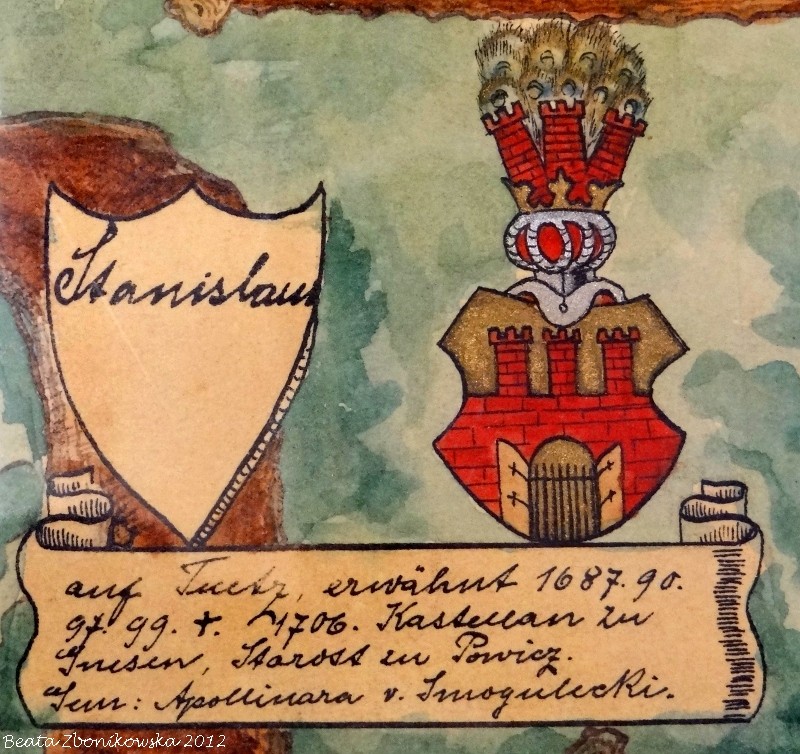 Stanislaus
auf Tuetz, erwähnt 1687. 90.
97. 99. †. 1706. Kastellan zu
Gnesen, Starost zu Powicz.
Gem: Apollinara v. Smogulecki.
Beata Zbonikowska 2012